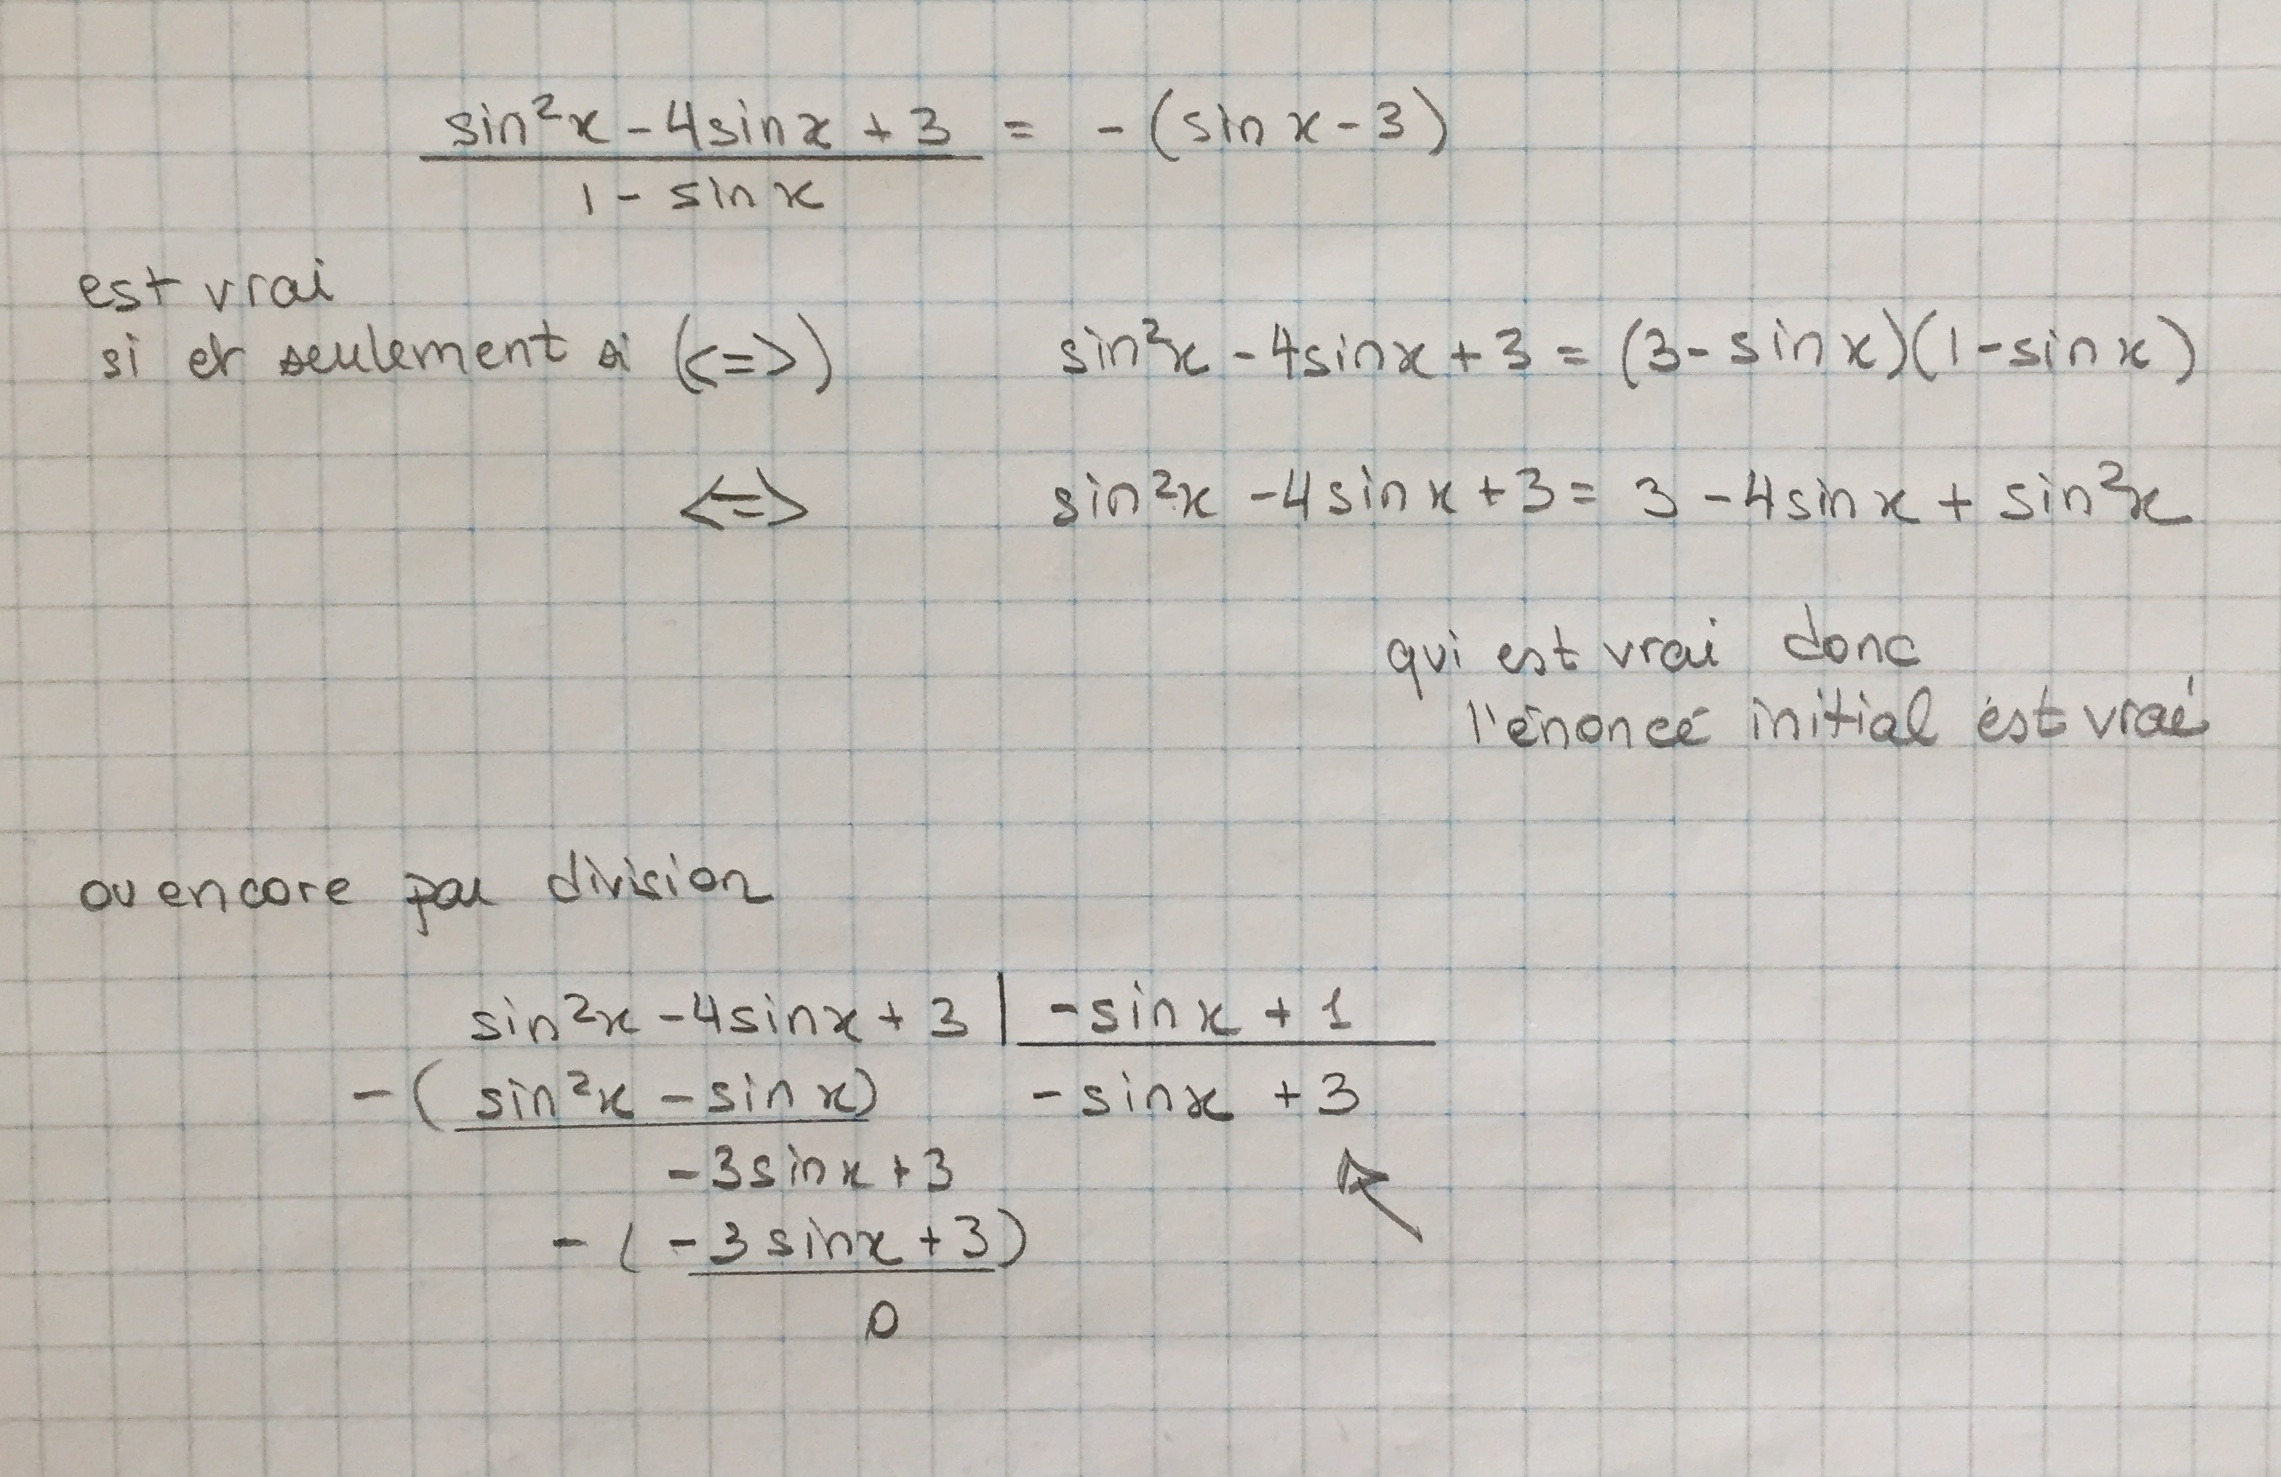 sin²x - 4sinx + 3 = - (sin x - 3)
1 - sin x
est vrai
si et seulement si (<=>) sin²x - 4sinx + 3 = (3 - sin x)(1 - sin x)
<=> sin²x - 4sin x + 3 = 3 - 4sin x + sin²x
qui est vrai donc
l'énoncé initial est vrai
ou encore par division
sin²x - 4sinx + 3 | -sin x + 1
- (sin²x - sin x) - sinx + 3
-3sin x + 3
- (-3sinx + 3)
0